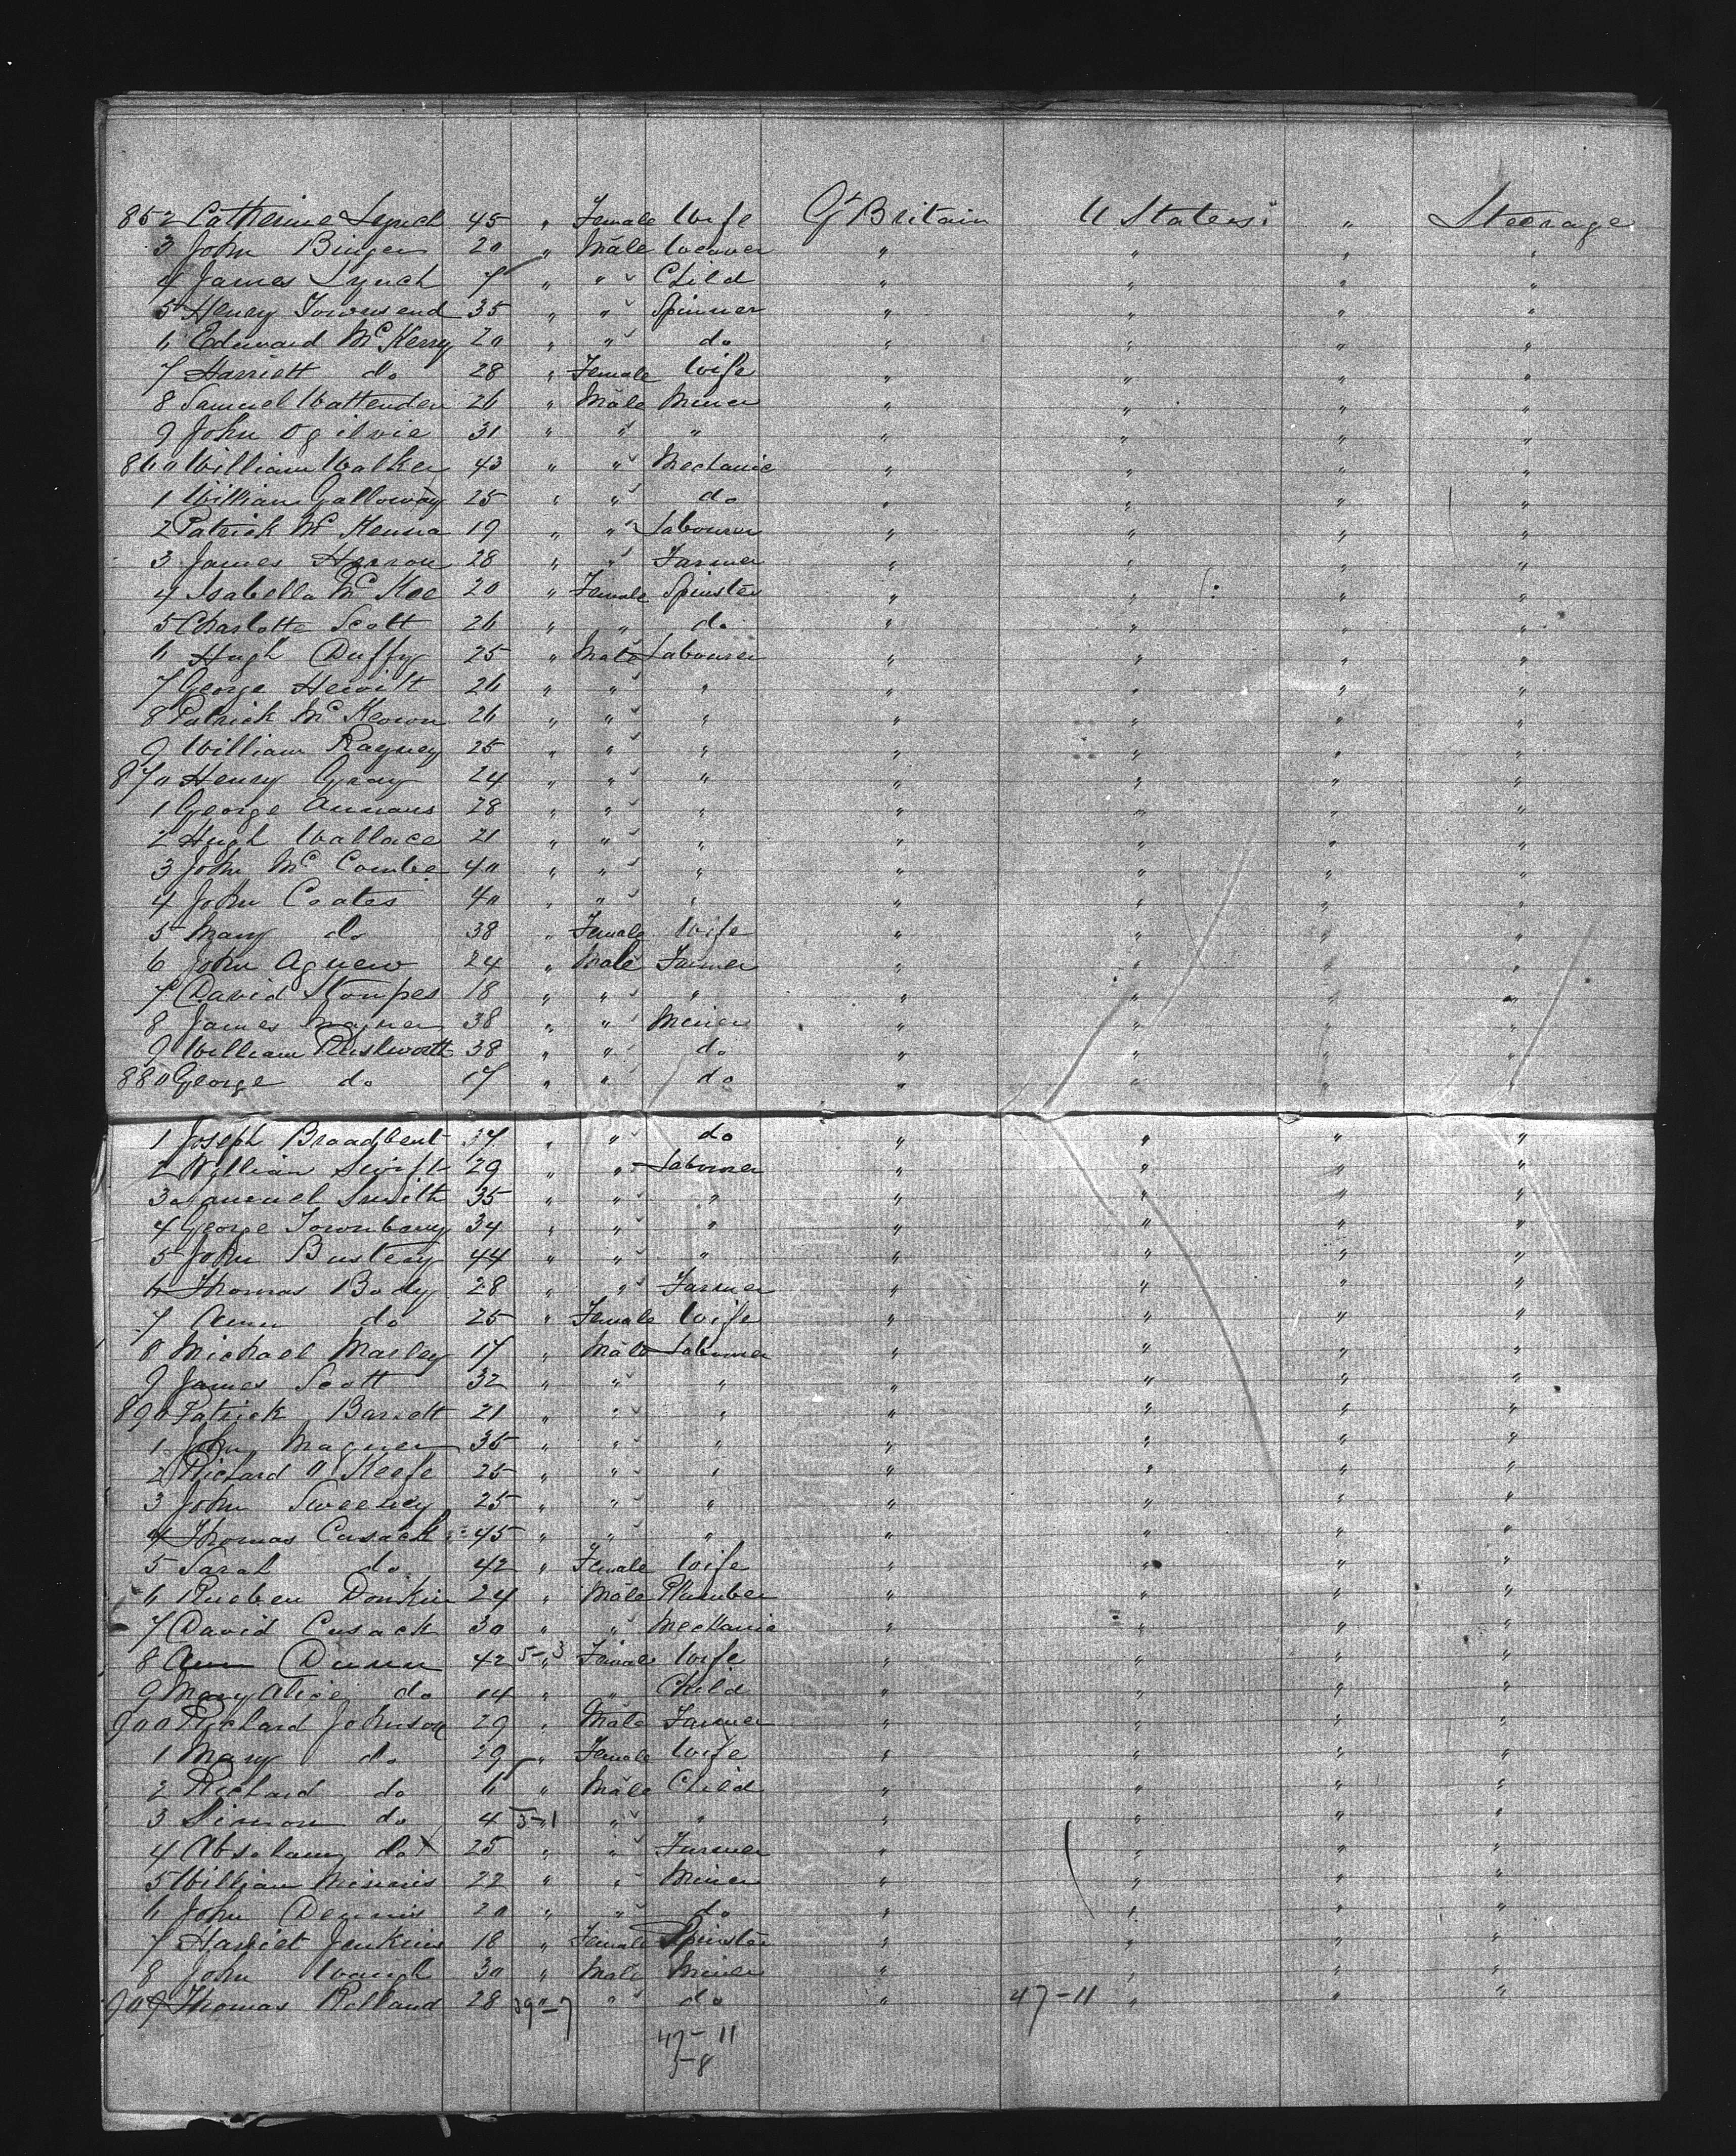 852 Catherine Lynch 45 " Female Wife Gt Britain U States " Steerage
3 John Binger 20 " Male Weaver " " " "
4 James Lynch 7 " " Child " " " "
5 Henry Townsend 35 " " Spinner " " " "
6 Edward McKerry 20 " " do " " " "
7 Harriett do 28 " Female Wife " " " "
8 Samuel Wattenden 26 " Male Miner " " " "
9 John Ogilvie 31 " " " " " " "
860 William Walker 43 " " Mechanic " " " "
1 William Galloway 25 " " do " " " "
2 Patrick McKenna 19 " " Labourer " " " "
3 James Herron 28 " " Farmer " " " "
4 Isabella McKee 20 " Female Spinster " " " "
5 Charlotte Scott 26 " " do " " " "
6 Hugh Duffy 25 " Male Labourer " " " "
7 George Hewitt 26 " " " " " " "
8 Patrick McKeown 26 " " " " " " "
9 William Ragney 25 " " " " " " "
870 Henry Gray 24 " " " " " " "
1 George Annans 28 " " " " " " "
2 Hugh Wallace 21 " " " " " " "
3 John McCombe 40 " " " " " " "
4 John Coates 40 " " " " " " "
5 Mary do 38 " Female Wife " " " "
6 John Agnew 24 " Male Farmer " " " "
7 David Stoupes 18 " " " " " " "
8 James 38 " " Miner " " " "
9 William Rushworth 38 " " do " " " "
880 George do 17 " " do " " " "
1 Joseph Broadbent 37 " " do " " " "
2 William Swift 29 " " Labourer " " " "
3 Samuel Smith 35 " " " " " " "
4 George Townbany 34 " " " " " " "
5 John Busteny 44 " " " " " " "
6 Thomas Body 28 " " Farmer " " " "
7 Ann do 25 " Female Wife " " " "
8 Michael Marley 17 " Male Labourer " " " "
9 James Scott 32 " " " " " " "
890 Patrick Barrett 21 " " " " " " "
1 John Magner 35 " " " " " " "
2 Richard O'Keefe 25 " " " " " " "
3 John Sweeney 25 " " " " " " "
4 Thomas Cusack 45 " " " " " " "
5 Sarah do 42 " Female Wife " " " "
6 Rueben Donkin 24 " Male Plumber " " " "
7 David Cusack 30 " " Mechanic " " " "
8 Ann Dunn 42 5-3 " Female Wife " " " "
9 Mary Alice do 14 " " Child " " " "
900 Richard Johnson 29 " Male Farmer " " " "
1 Mary do 29 " Female Wife " " " "
2 Richard do 6 " Male Child " " " "
3 Simon do 4 3-1 " " " " " " "
4 Absolam do 25 " " Farmer " " " "
5 William Minnis 22 " " Miner " " " "
6 John Dennis 20 " " do " " " "
7 Harriet Jenkins 18 " Female Spinster " " " "
8 John Waugh 30 " Male Miner " " " "
909 Thomas Rolland 28 39-7 " " do " 47-11 " " "
47-11
5-8